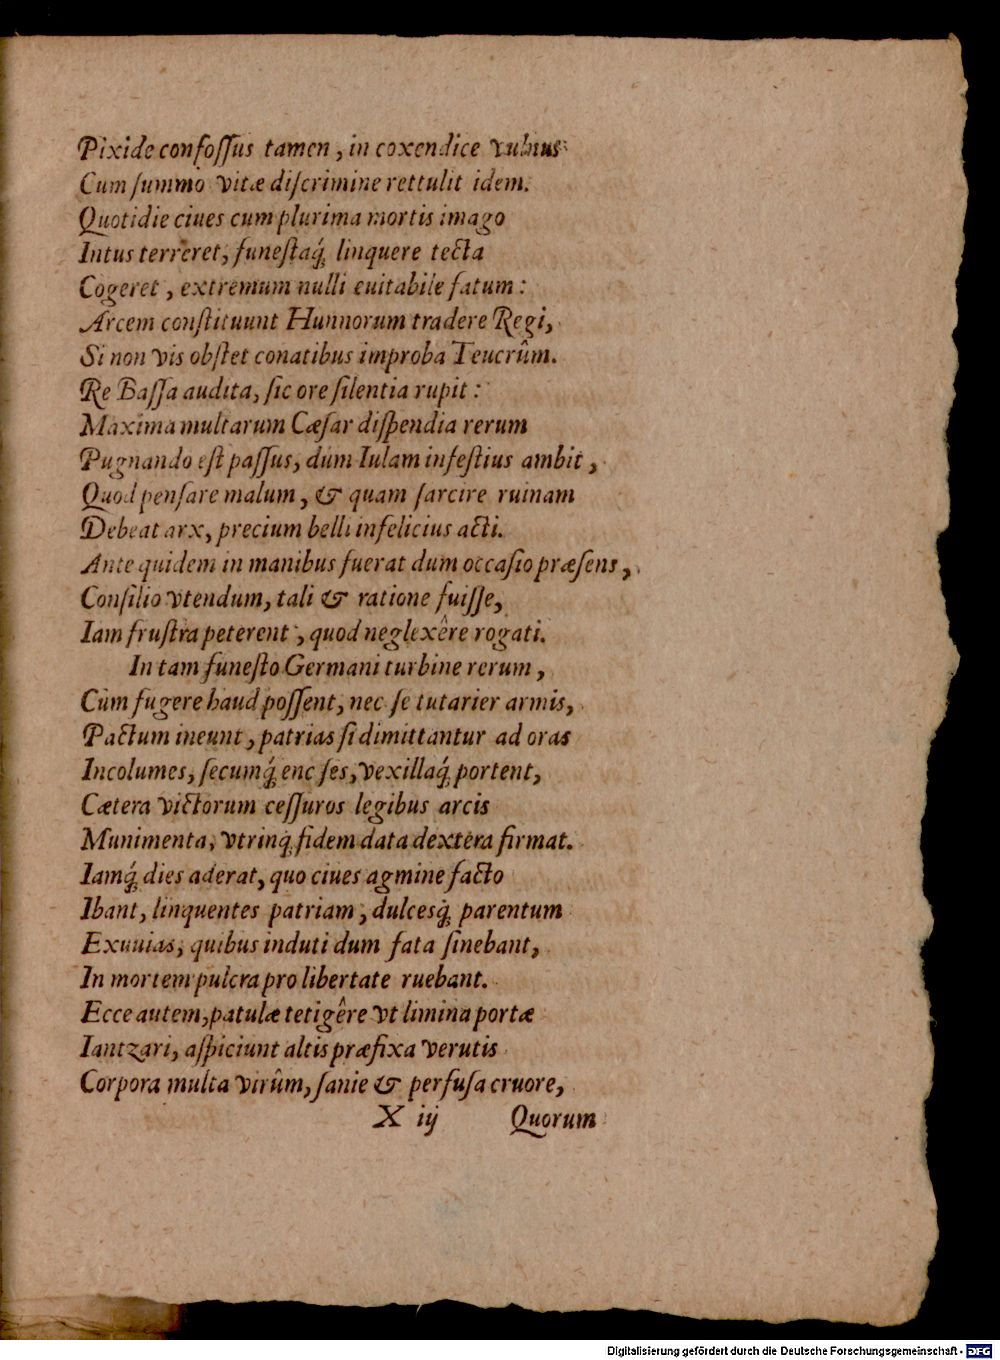 Pixide confoſſus tamen, in coxendice vulnus
Cum ſummo vitæ diſcrimine rettulit idem.
Quotidie ciues cum plurima mortis imago
Intus terreret, funeſtaq́; linquere tecta
Cogeret, extremum nulli euitabile fatum:
Arcem conſtituunt Hunnorum tradere Regi,
Si non vis obſtet conatibus improba Teucrûm.
Re Baſſa audita, ſic ore ſilentia rupit:
Maxima multarum Cæſar diſpendia rerum
Pugnando eſt paſſus, dum Iulam infeſtius ambit,
Quod penſare malum, & quam ſarcire ruinam
Debeat arx, precium belli infelicius acti.
Ante quidem in manibus fuerat dum occaſio præſens,
Conſilio vtendum, tali & ratione fuiſſe,
Iam fruſtra peterent, quod neglexêre rogati.
In tam funeſto Germani turbine rerum,
Cùm fugere haud poſſent, nec ſe tutarier armis,
Pactum ineunt, patrias ſi dimittantur ad oras
Incolumes, ſecumq́; enc ſes, vexillaq́; portent,
Cætera victorum ceſſuros legibus arcis
Munimenta, vtrinq; fidem data dextera firmat.
Iamq́; dies aderat, quo ciues agmine facto
Ibant, linquentes patriam, dulcesq́; parentum
Exuuias, quibus induti dum fata ſinebant,
In mortem pulcra pro libertate ruebant.
Ecce autem, patulæ tetigêre vt limina portæ
Iantzari, aſpiciunt altis præfixa verutis
Corpora multa virûm, ſanie & perfuſa cruore,
X iij Quorum
Digitalisierung gefördert durch die Deutsche Forschungsgemeinschaft - DFG